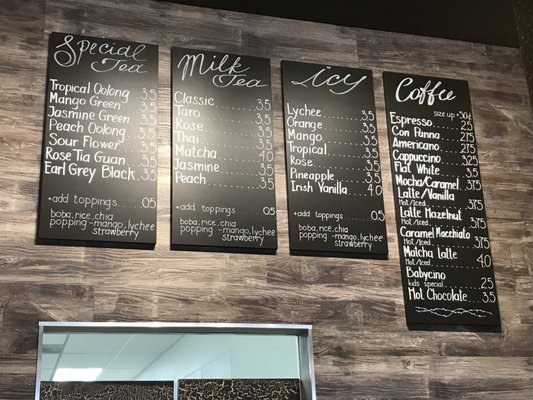 Special Tea
Tropical Oolong 3.5
Mango Green 3.5
Jasmine Green 3.5
Peach Oolong 3.5
Sour Flower 3.5
Rose Tia Guan 3.5
Earl Grey Black 3.5
*add toppings 0.5
boba, rice, chia
popping - mango, lychee
strawberry
Milk Tea
Classic 3.5
Taro 3.5
Rose 3.5
Thai 3.5
Matcha 4.0
Jasmine 3.5
Peach 3.5
*add toppings 0.5
boba, rice, chia
popping - mango, lychee
strawberry
Icy
Lychee 3.5
Orange 3.5
Mango 3.5
Tropical 3.5
Rose 3.5
Pineapple 3.5
Irish Vanilla 4.0
*add toppings 0.5
boba, rice, chia
popping - mango, lychee
strawberry
Coffee
size up +50¢
Espresso 2.5
Con Panna 2.5
Americano 2.5
Cappuccino 3.25
Flat White 3.5
Mocha/Caramel 3.75
Latte/Vanilla
Hot/Iced 3.75
Latte Hazelnut
Hot/Iced 3.75
Caramel Macchiato
Hot/Iced 3.75
Matcha Latte
Hot/Iced 4.0
Babycino
kids special 2.5
Hot Chocolate 3.5